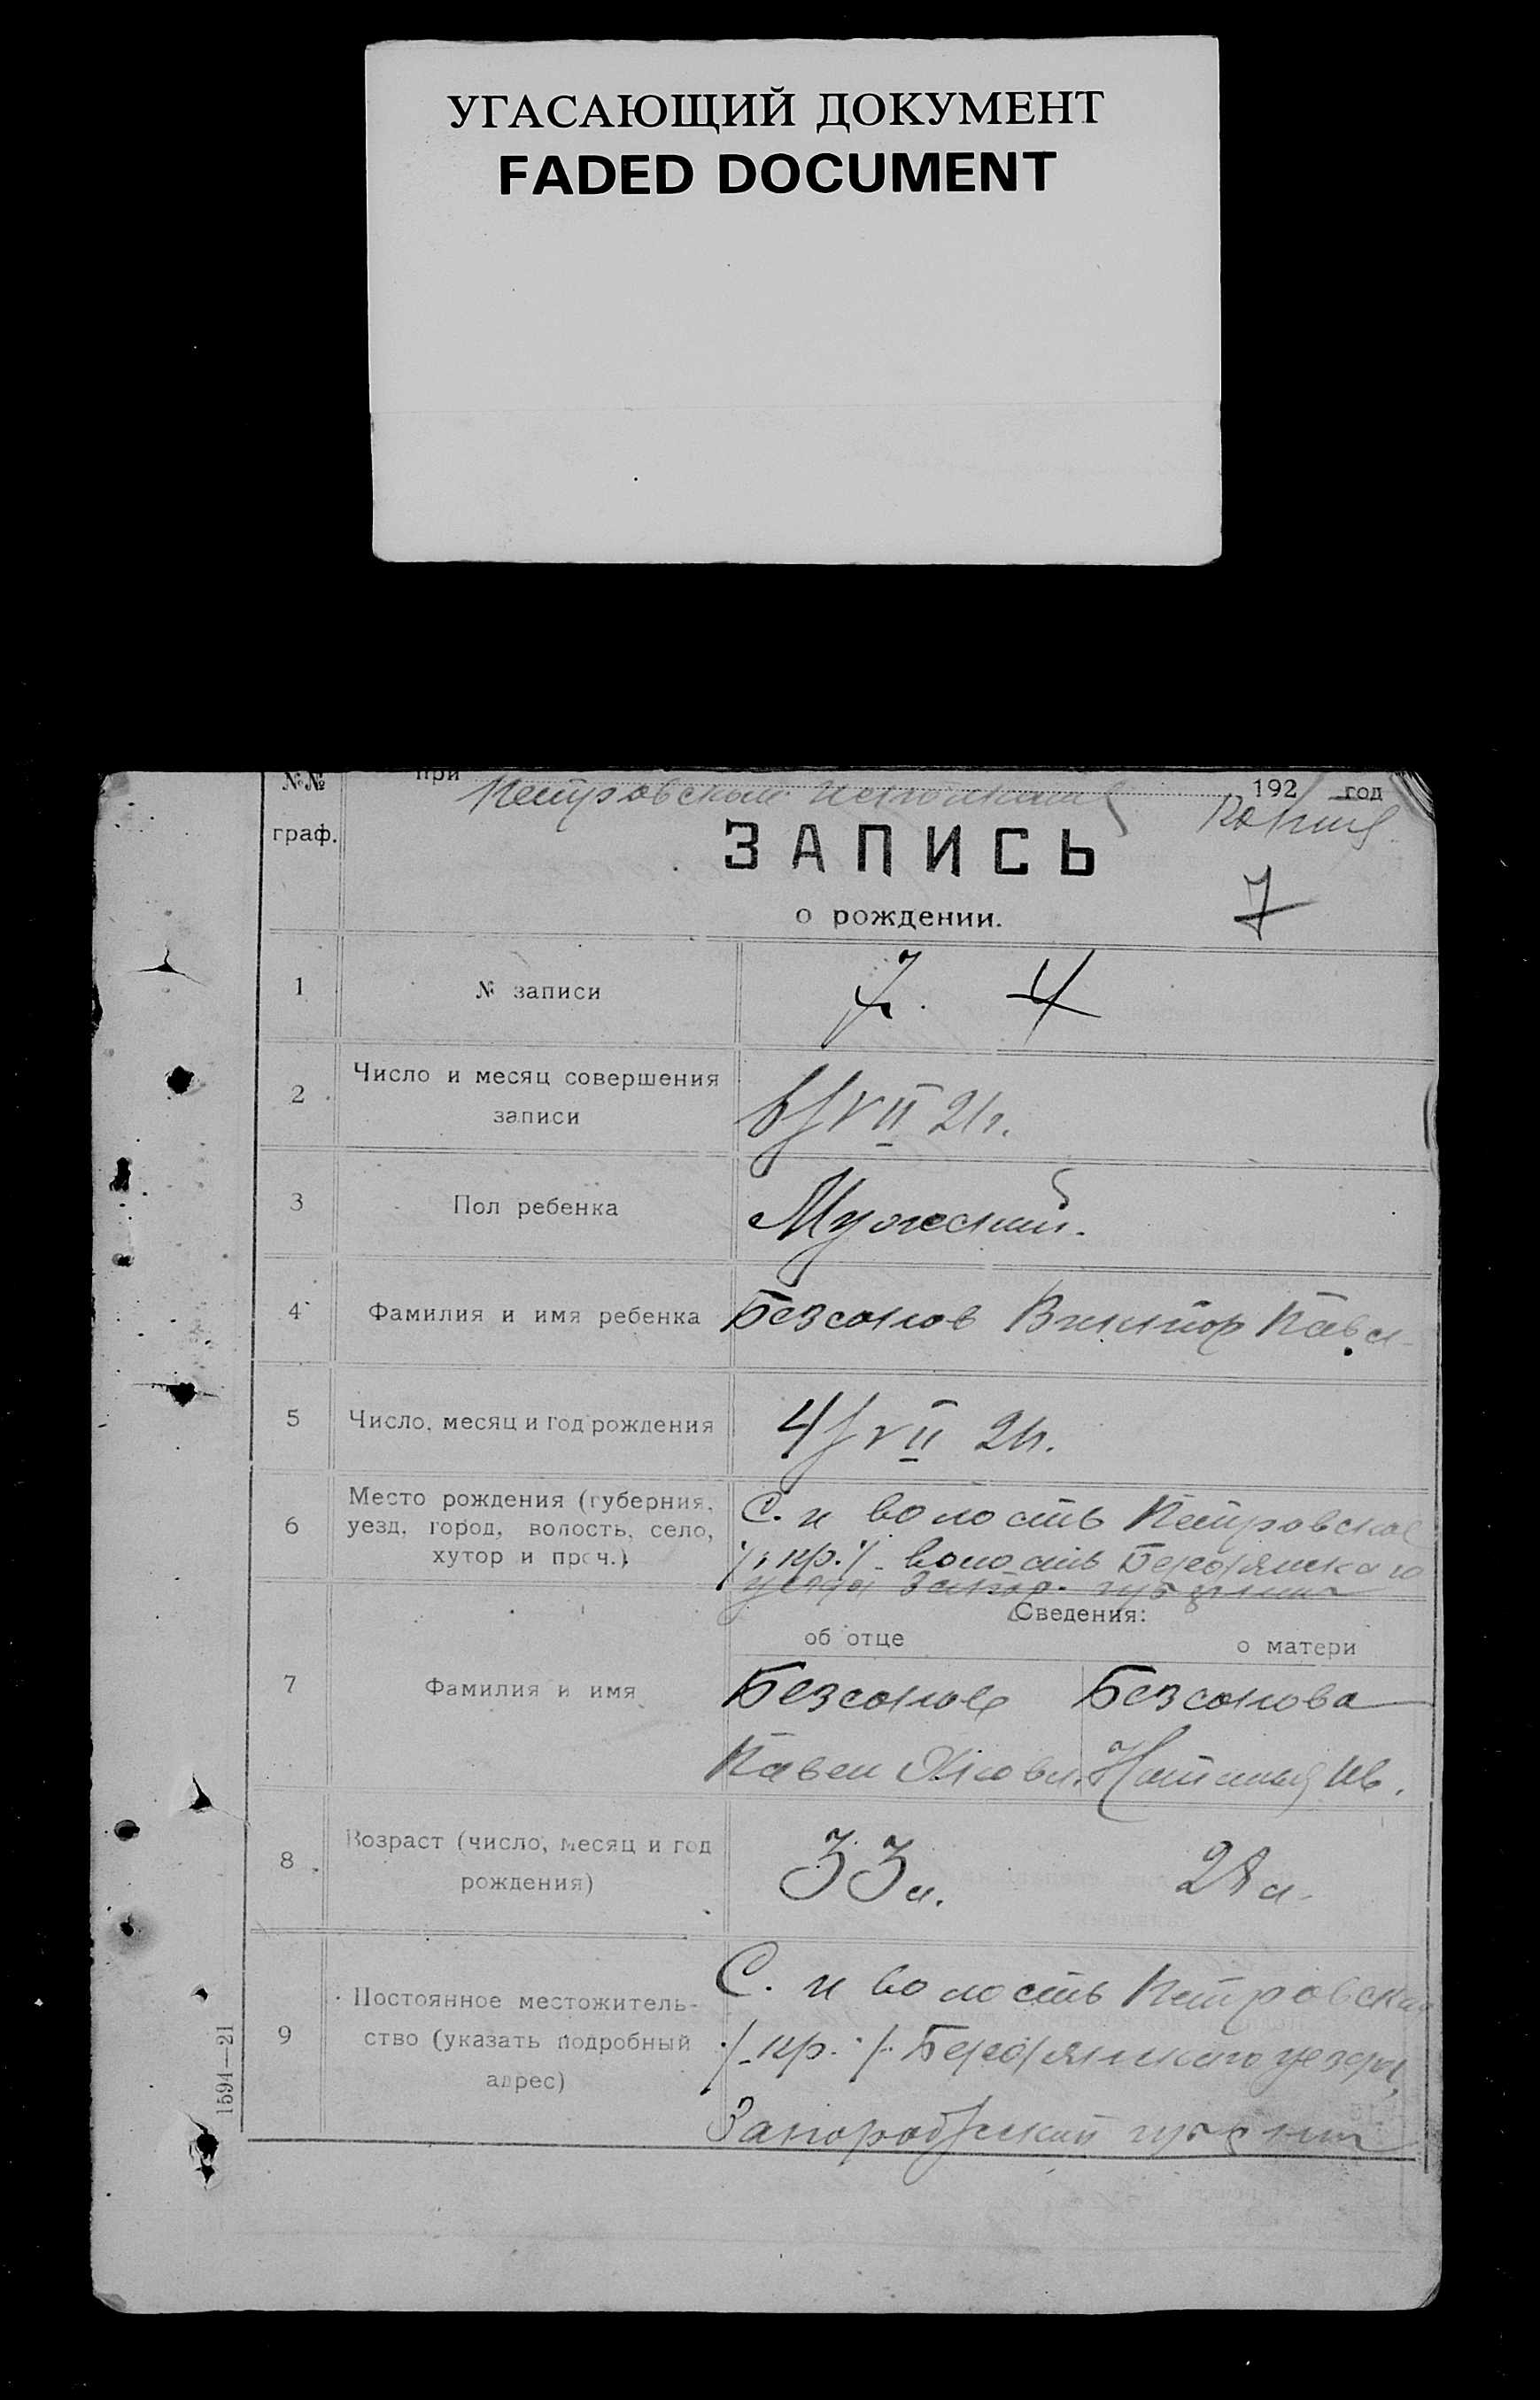 УГАСАЮЩИЙ ДОКУМЕНТ
FADED DOCUMENT
№№ при 192 год
граф.
Петровским
Копия
ЗАПИСЬ
о рождении.
7
1 № записи 7. 4
2 Число и месяц совершения
записи
6/VII 21г.
3 Пол ребенка Мужеский.
4 Фамилия и имя ребенка Безсонов Виктор Павл
5 Число, месяц и год рождения 4/VII 21г.
6 Место рождения (губерния,
уезд, город, волость, село,
хутор и проч.)
С. и волость Петровское
кр. волость Бердянскаго
уезда Запор. губернии
Сведения:
об отце о матери
7 Фамилия и имя Безсонов Безсонова
Павел Яковл.
8 Возраст (число, месяц и год
рождения)
33 л. 28 л.
9 Постоянное местожитель-
ство (указать подробный
адрес)
С. и волость Петровская
/кр./ Бердянскаго уезда,
Запорожский губернии
1594—21